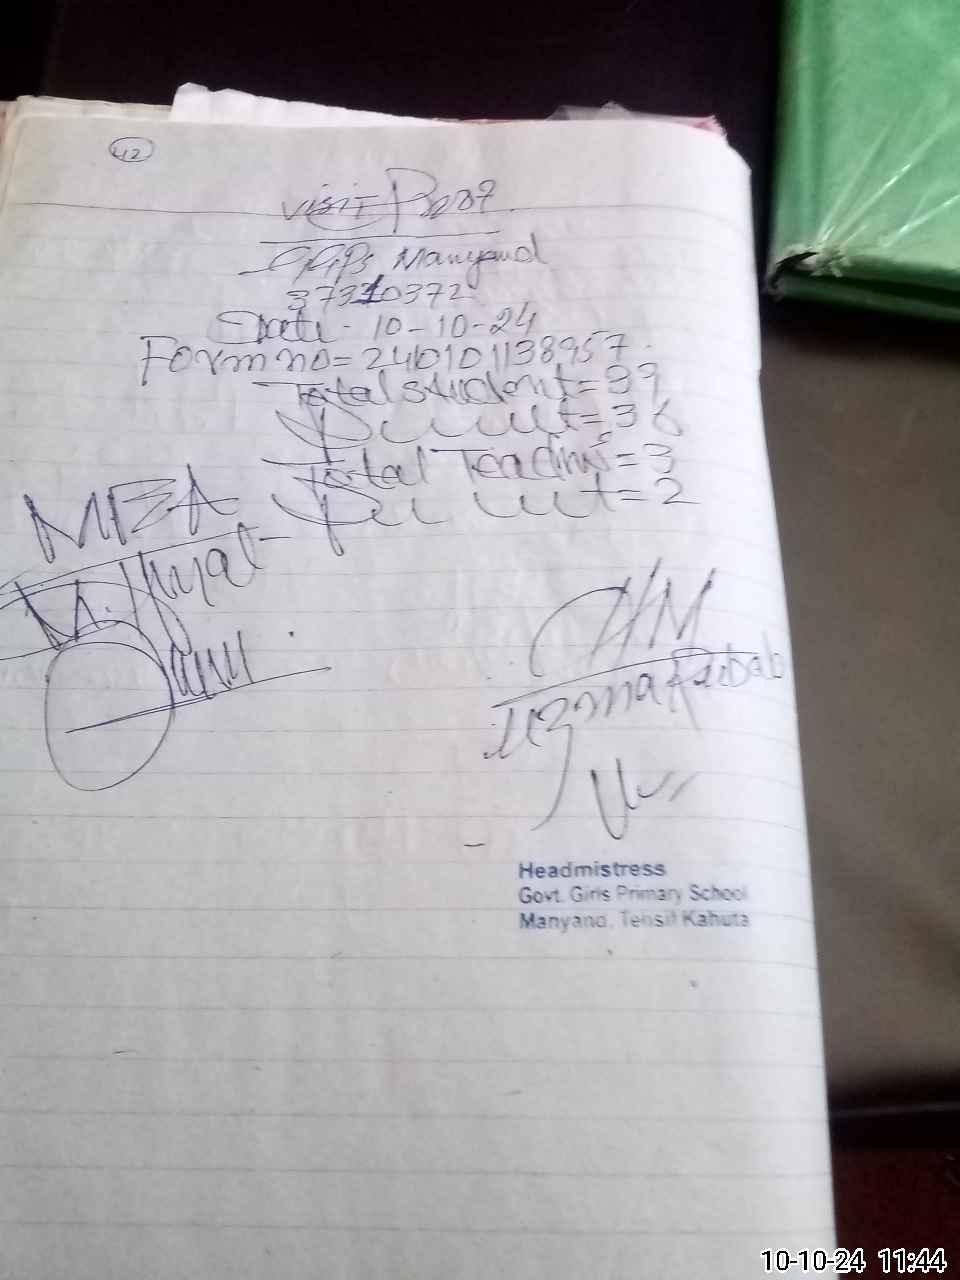 42
Visit
GGPS Manyand
37310372
Date. 10-10-24
Form no=240101138957.
Total student=39
Present=36
Total Teachers=3
Present=2
MEA
M.
HM
Uzma Rabab
Headmistress
Govt. Girls Primary School
Manyand, Tehsil Kahuta
10-10-24 11:44